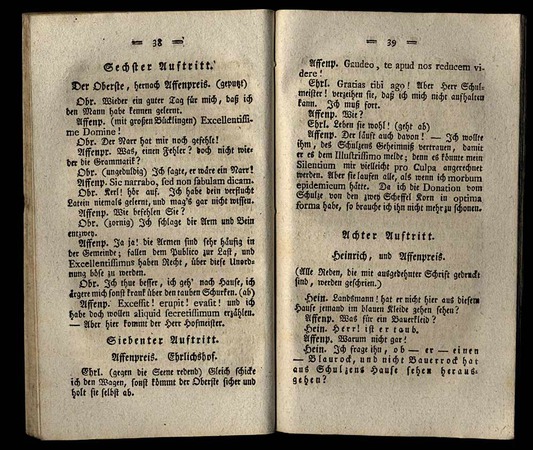 = 38 =
Sechster Auftritt.
Der Oberste, hernach Affenpreis. (geputzt)
Obr. Wieder ein guter Tag für mich, daß ich
den Mann habe kennen gelernt.
Affenp. (mit großen Bücklingen) Excellentissi-
me Domine!
Obr. Der Narr hat mir noch gefehlt!
Affenpr. Was, einen Fehler? doch nicht wie-
der die Grammatik?
Obr. (ungeduldig) Ich sagte, er wäre ein Narr!
Affenp. Sic narrabo, sed non fabulam dicam.
Obr. Kerl! hör auf. Ich habe dein verflucht
Latein niemals gelernt, und mag's gar nicht wissen.
Affenp. Wie befehlen Sie?
Obr. (zornig) Ich schlage die Arm und Bein
entzwey.
Affenp. Ja ja! die Armen sind sehr häufig in
der Gemeinde; fallen dem Publico zur Last, und
Excellentissimus haben Recht, über diese Unord-
nung böse zu werden.
Obr. Ich thue besser, ich geh' nach Hause, ich
ärgere mich sonst krank über den tauben Schurken. (ab)
Affenp. Excessit! erupit! evasit! und ich
habe doch wollen aliquid secretissimum erzählen.
— Aber hier kommt der Herr Hofmeister.
Siebenter Auftritt.
Affenpreis. Ehrlichshof.
Ehrl. (gegen die Scene redend) Gleich schicke
ich den Wagen, sonst kömmt der Oberste sicher und
holt sie selbst ab.
= 39 =
Affenp. Gaudeo, te apud nos reducem vi-
dere!
Ehrl. Gratias tibi ago! Aber Herr Schul-
meister! verzeihen sie, daß ich mich nicht aufhalten
kann. Ich muß fort.
Affenp. Wie?
Ehrl. Leben sie wohl! (geht ab)
Affenp. Der läuft auch davon! — Ich wollte
ihm, des Schulzens Geheimniß vertrauen, damit
er es dem Illustrissimo melde; denn es könnte mein
Silentium mir vielleicht pro Culpa angerechnet
werden. Aber sie laufen alle, als wenn ich morbum
epidemicum hätte. Da ich die Donation vom
Schulze von den zwey Scheffel Korn in optima
forma habe, so brauche ich ihn nicht mehr zu schonen.
Achter Auftritt.
Heinrich, und Affenpreis.
(Alle Reden, die mit ausgedehnter Schrift gedruckt
sind, werden geschrien.)
Hein. Landsmann! hat er nicht hier aus diesem
Hause jemand im blauen Kleide gehen sehen?
Affenp. Was für ein Bauerkleid?
Hein. Herr! ist er taub.
Affenp. Warum nicht gar!
Hein. Ich frage ihn, ob — er — einen
— Blaurock, und nicht Bauerrock hat
aus Schulzens Hause sehen heraus-
gehen?